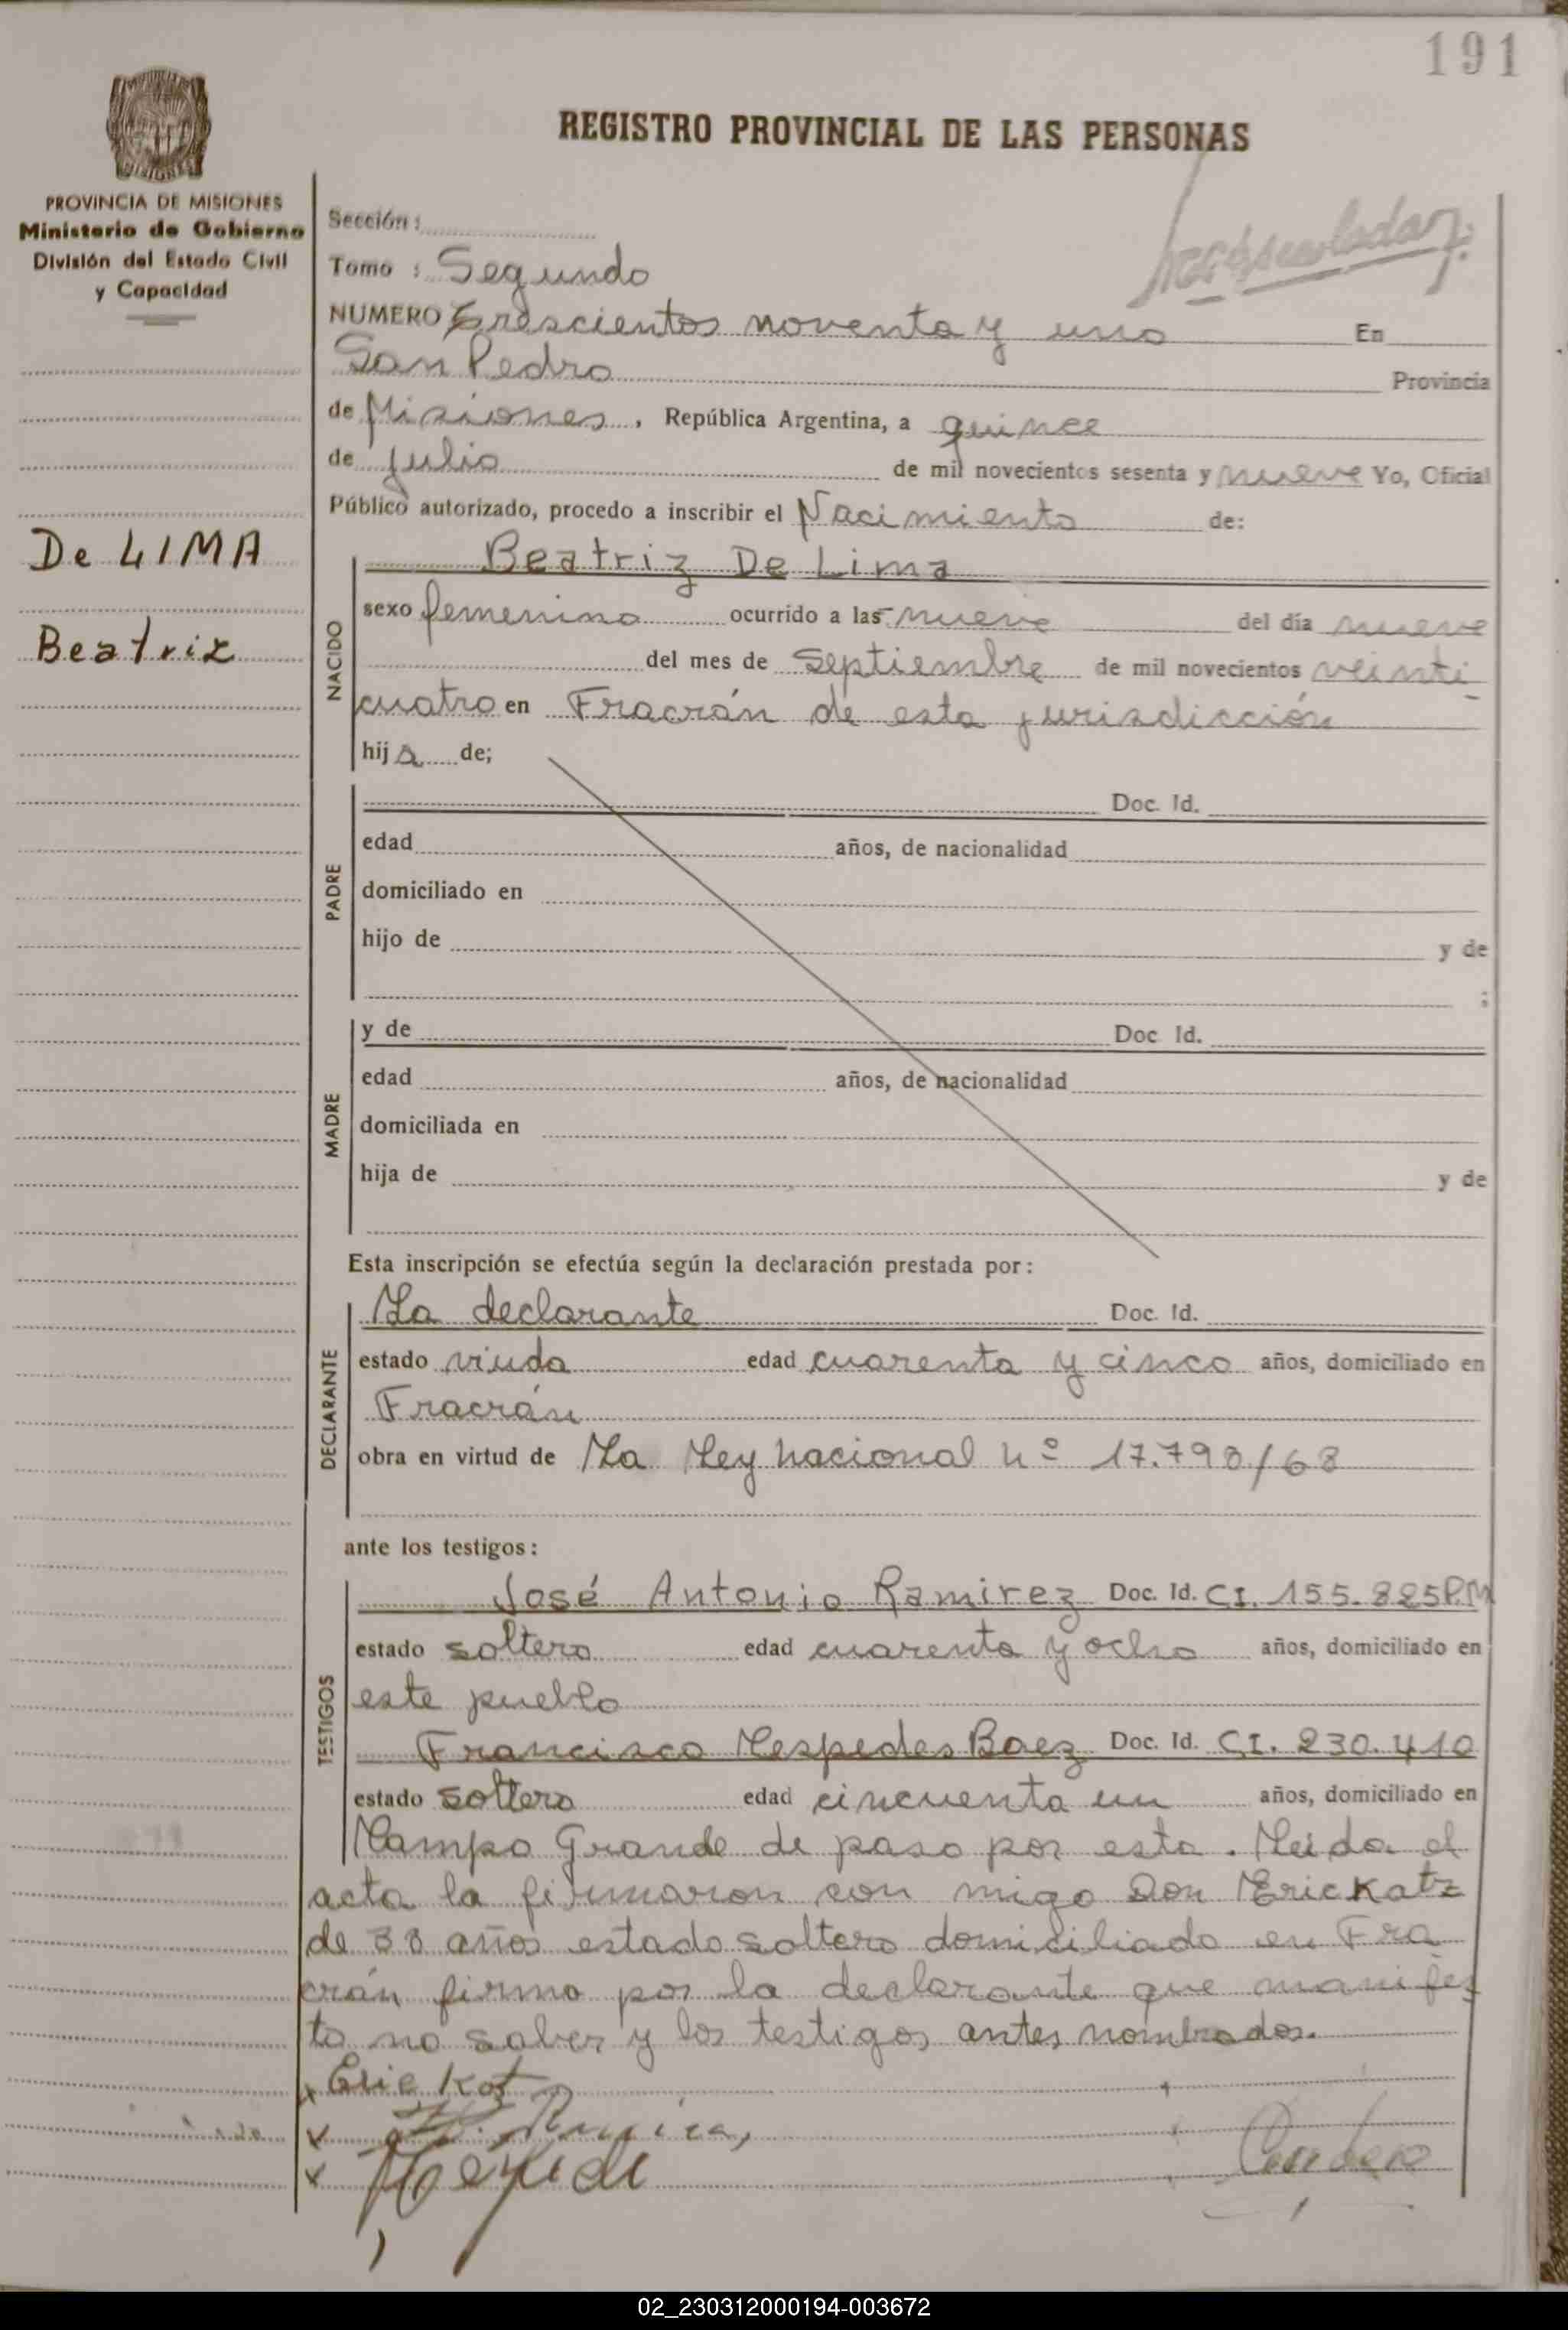 191
REGISTRO PROVINCIAL DE LAS PERSONAS
MISIONES
PROVINCIA DE MISIONES
Ministerio de Gobierno
División del Estado Civil
y Capacidad
Sección:
Tomo : Segundo
NUMERO trescientos noventa y uno En
San Pedro Provincia
de Misiones, República Argentina, a quince
de julio de mil novecientos sesenta y nueve Yo, Oficial
Público autorizado, procedo a inscribir el Nacimiento de:
De LIMA
Beatriz
NACIDO
Beatriz De Lima
sexo femenino ocurrido a las nueve del día nueve
del mes de Septiembre de mil novecientos veinti
cuatro en Fracrán de esta jurisdicción
hija de;
PADRE
Doc. Id.
edad años, de nacionalidad
domiciliado en
hijo de y de
;
MADRE
y de Doc. Id.
edad años, de nacionalidad
domiciliada en
hija de y de
Esta inscripción se efectúa según la declaración prestada por:
DECLARANTE
La declarante Doc. Id.
estado viuda edad cuarenta y cinco años, domiciliado en
Fracrán
obra en virtud de La Ley nacional nº 17.798/68
ante los testigos:
TESTIGOS
José Antonio Ramirez Doc. Id. CI. 155.825P.M
estado soltero edad cuarenta y ocho años, domiciliado en
este pueblo
Francisco Cespedes Baez Doc. Id. CI. 230.410
estado soltero edad cincuenta un años, domiciliado en
Campo Grande de paso por esta. Leida el
acta la firmaron con migo Don Eric Katz
de 38 años estado soltero domiciliado en Fra
crán firmo por la declarante que manifes
to no saber y los testigos antes nombrados.
x Eric Kat
x
x
02_230312000194-003672